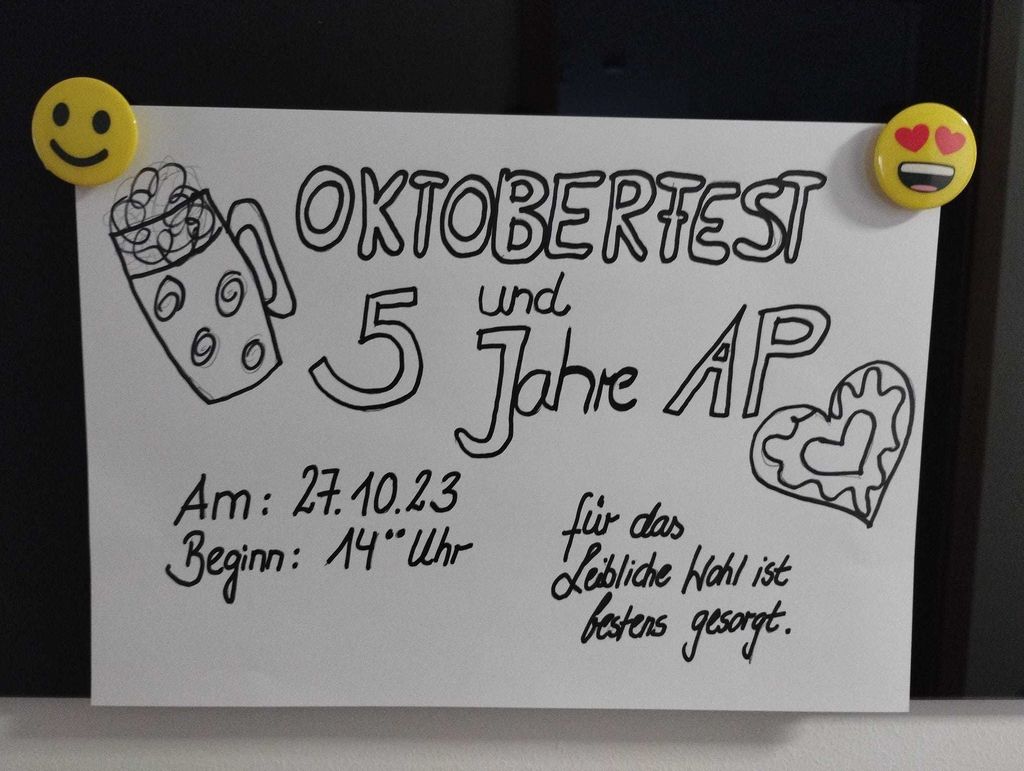 OKTOBERFEST
und
5 Jahre AP
Am: 27.10.23
Beginn: 14°° Uhr
für das
Leibliche Wohl ist
bestens gesorgt.